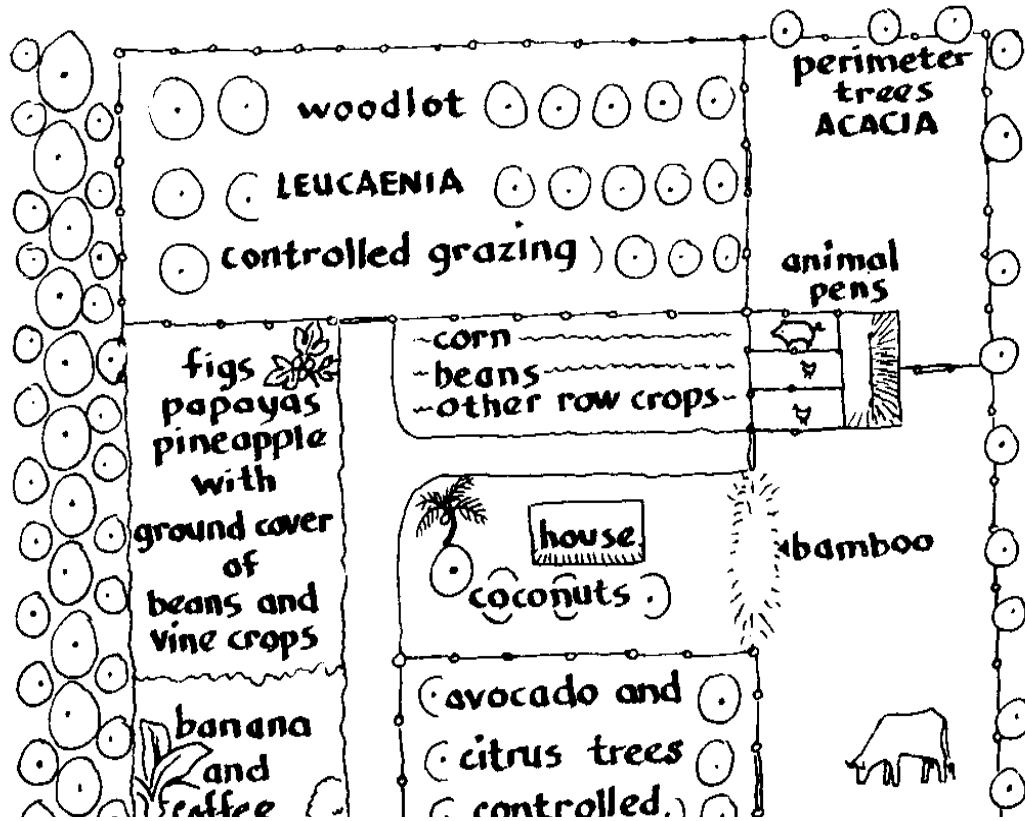 perimeter
trees
ACACIA
woodlot
LEUCAENIA
controlled grazing
animal
pens
figs
papayas
pineapple
with
ground cover
of
beans and
vine crops
corn
beans
other row crops
house
coconuts
bamboo
banana
and
coffee
avocado and
citrus trees
controlled